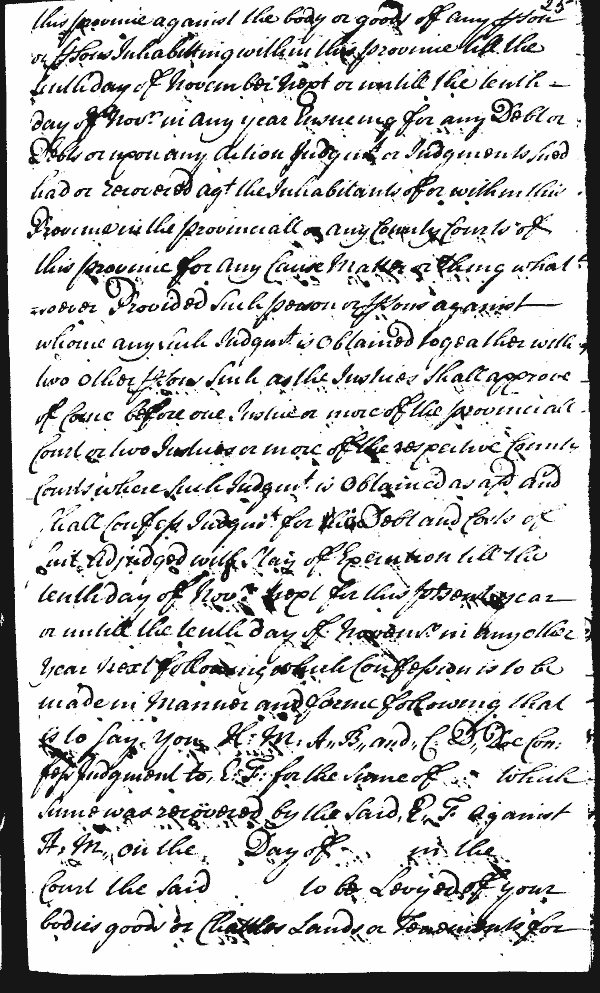 25
this province against the body or goods of any p̱son
or p̱sons Inhabitting within this province till the
tenth day of November Next or untill the tenth
day of Novr in any year Ensueing for any Debt or
Debts or upon any Action Judgmt or Judgments sued
had or recovered agt the Inhabitants of or within this
Province in the provinciall or any County Courts of
this province for any Cause Matter or thing what
soever Provided such person or p̱sons against
whome any such Judgmt is obtained togeather with
two other p̱sons such as the Justices shall approve
of Come before one Justice or more of the provinciall
Court or two Justices or more of the respective County
Courts where such Judgmt is obtained as afd and
shall Confess Judgmt for the Debt and Costs of
suit Adjudged with stay of Execution till the
tenth day of Novr next for this p̱sent year
or untill the tenth day of Novemr in any other
year next following which Confession is to be
made in Manner and forme following that
is to say you H: M: A: B, and, C: D, Doe Con:
fess Judgment to, E: F: for the sume of which
sume was recovered by the said, E, F against
H, M, on the Day of in the
Court the said to be Levyed of your
bodies goods or Chattles Lands or Tenements for